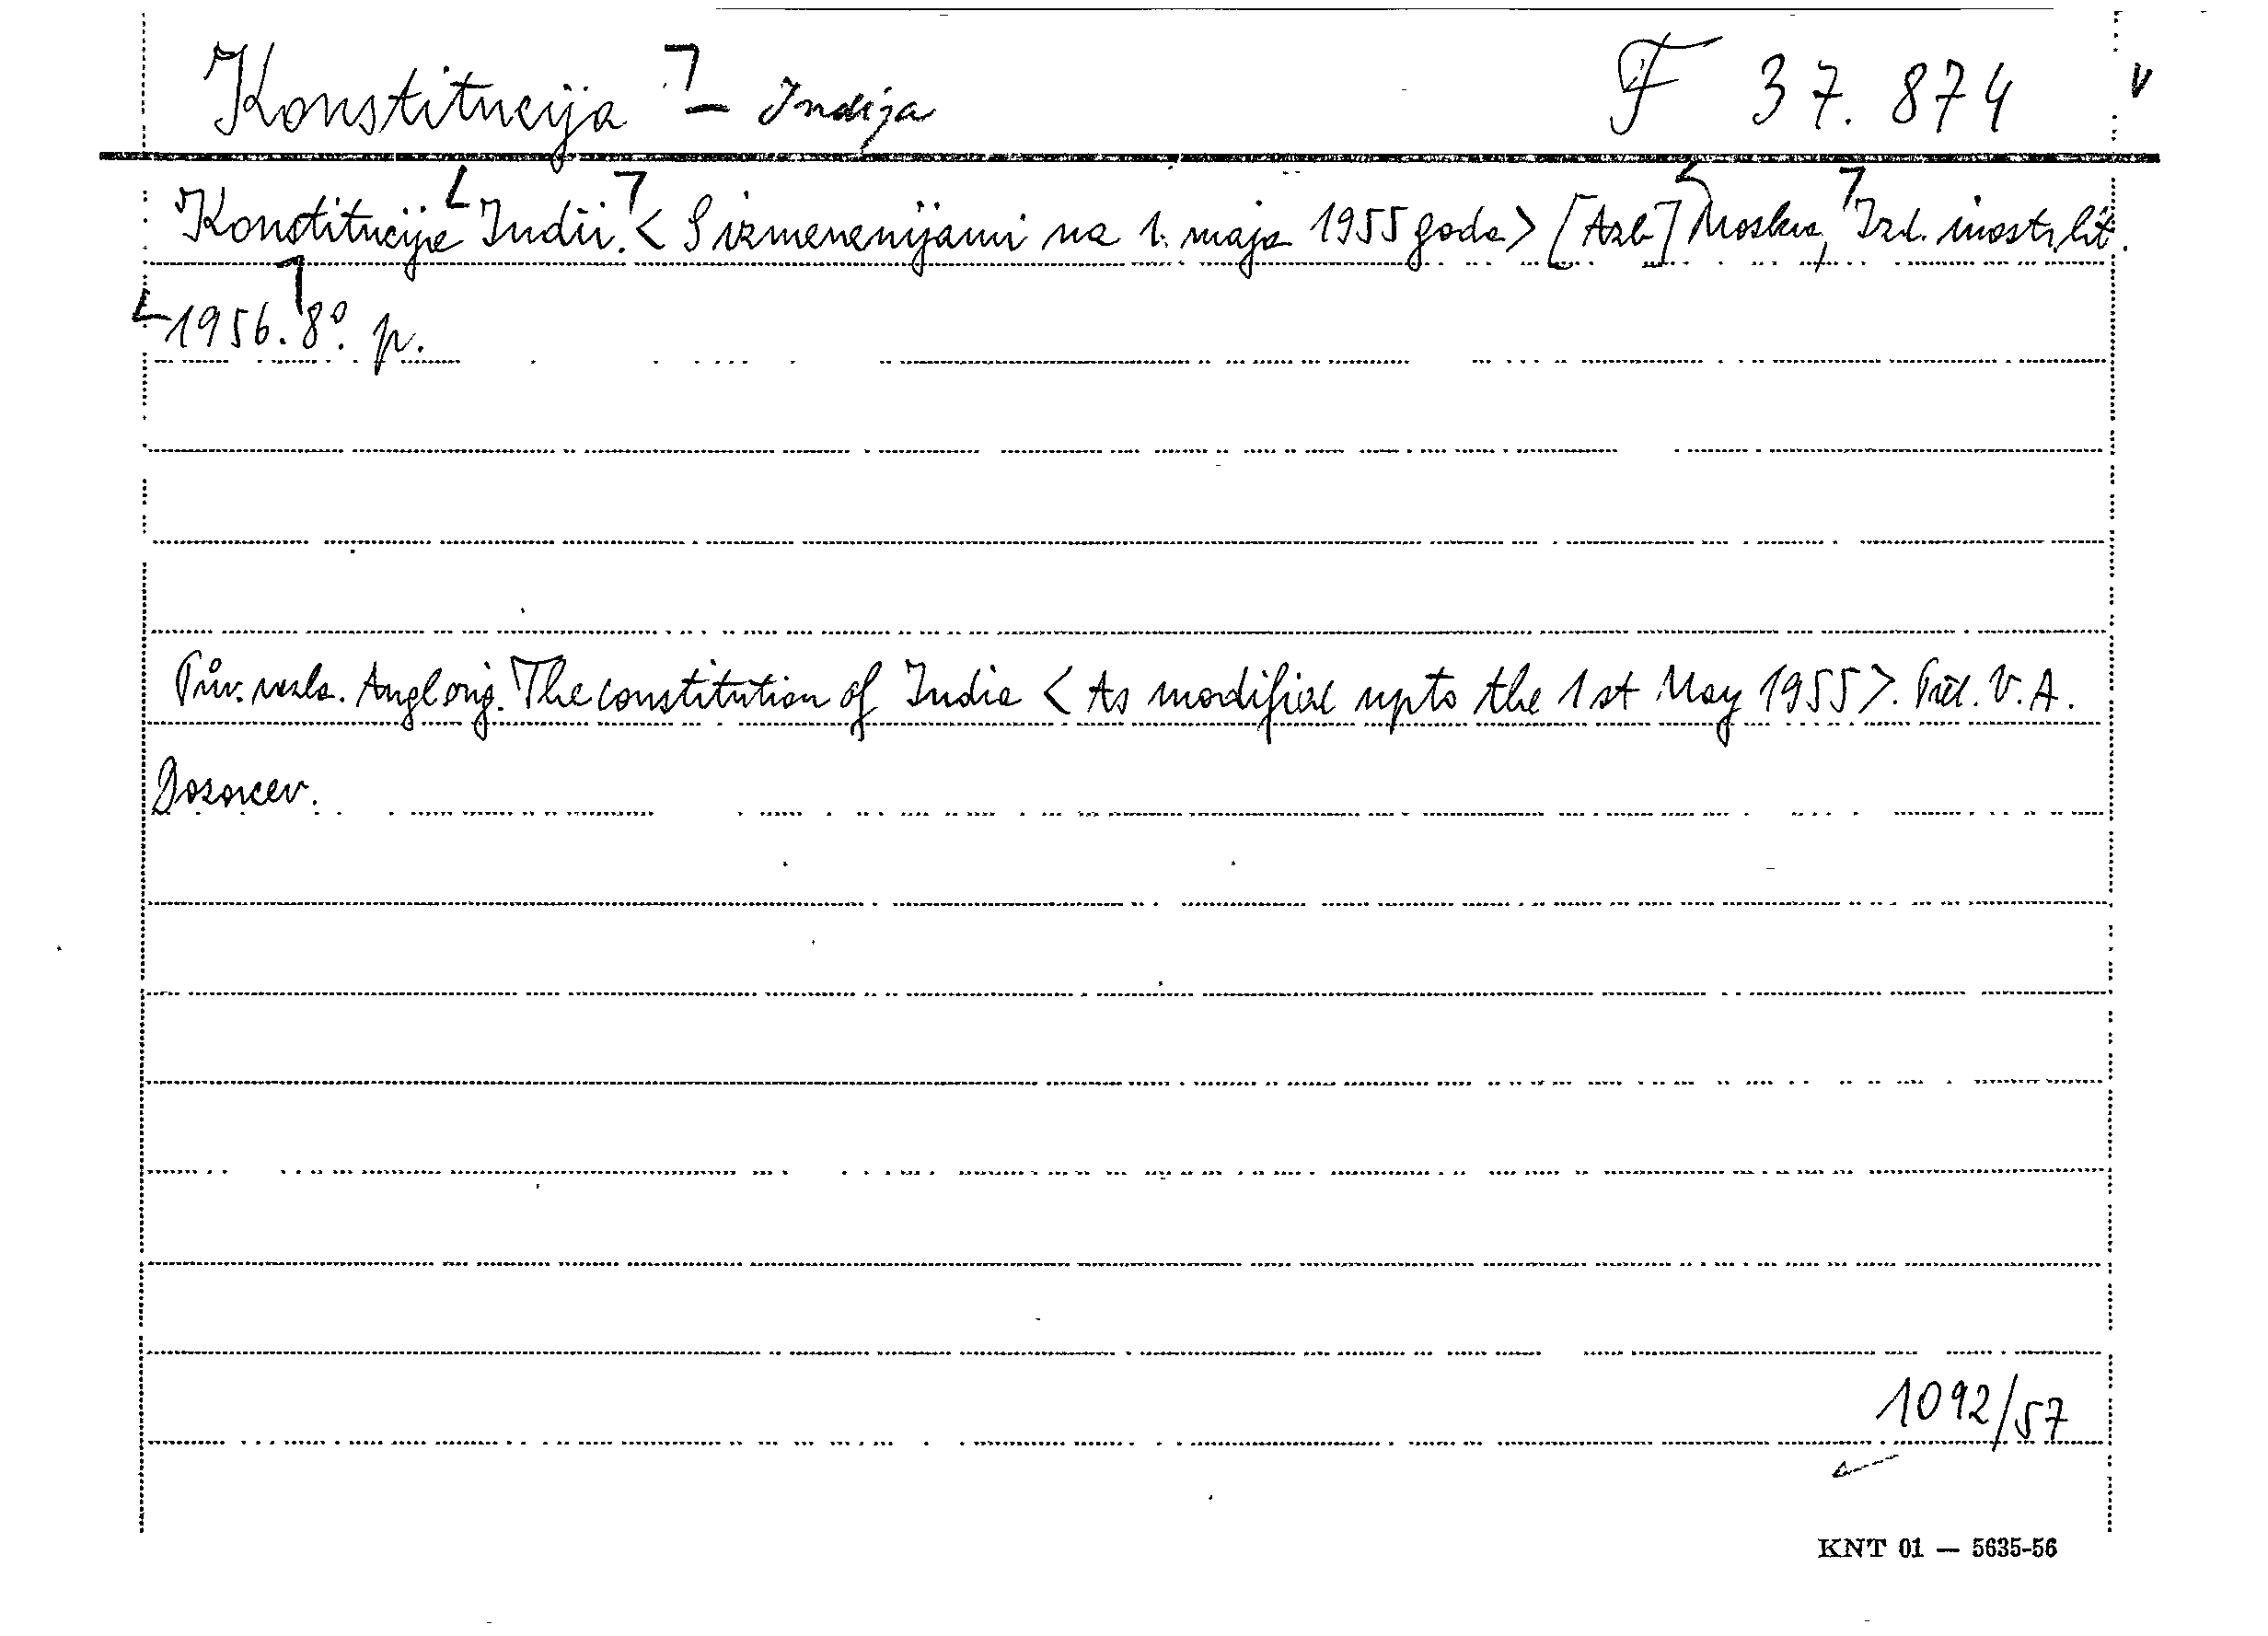 Konstitucija - Indija F 37.874
Konstitucija Indii. < S izmenenijami na 1. maja 1955 goda > [Azb.] Moskva, Izd. inostr. lit.
1956. 8°. p.
Pův. vazba. Angl orig. The constitution of India < As modified up to the 1 st May 1955 >. Přel. V. A.
Dozorcev.
1092/57
KNT 01 — 5635-56